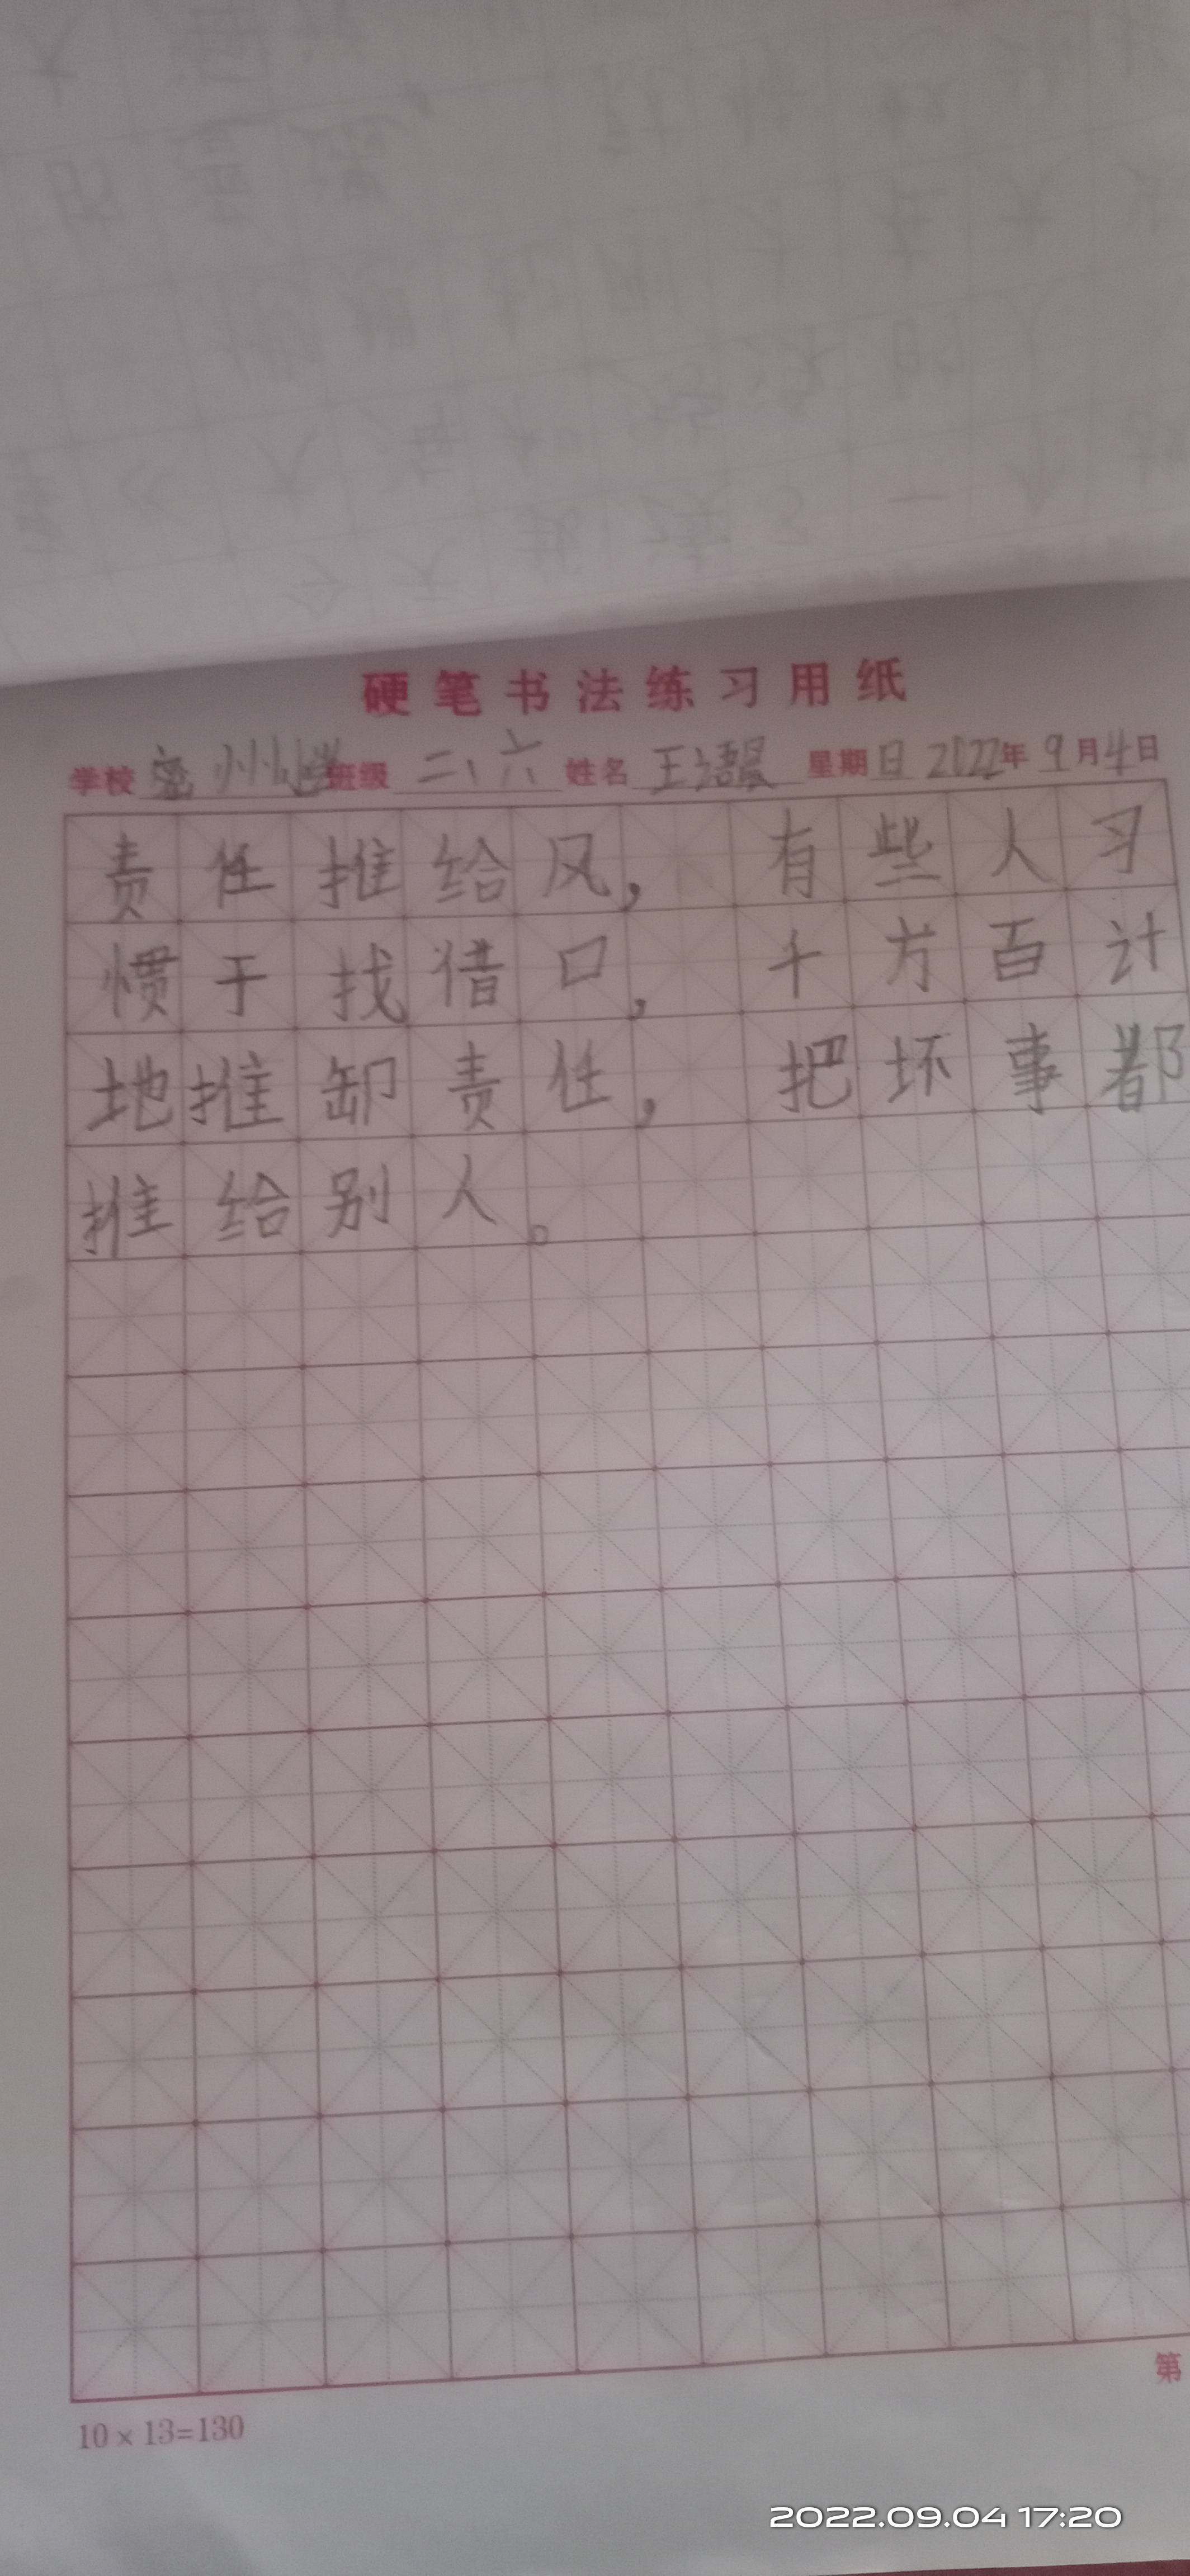 硬笔书法练习用纸
学校 密州小学 班级 二、六 姓名 王 星期日 2022年9月4日
责任推给风，有些人习
惯于找借口，千方百计
地推卸责任，把坏事都
推给别人。
第
10×13=130
2022.09.04 17:20